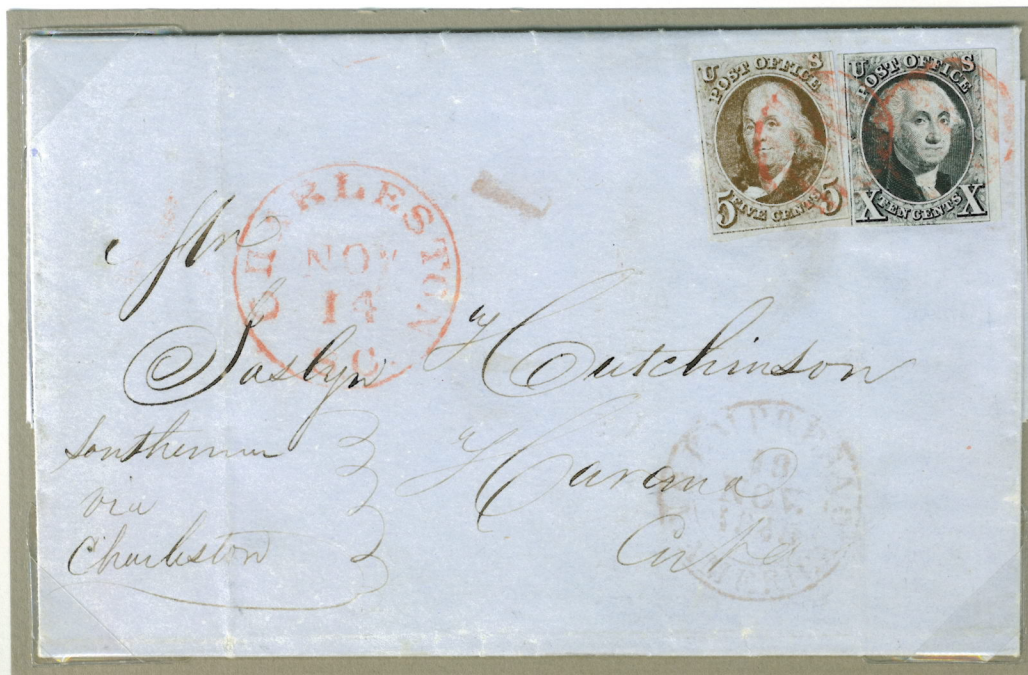 U S
POST OFFICE
5 FIVE CENTS 5
U S
POST OFFICE
X TEN CENTS X
CHARLESTON
NOV
14
SC
Joslyn Hutchinson
Southerner
via
Charleston
Havana
Cuba